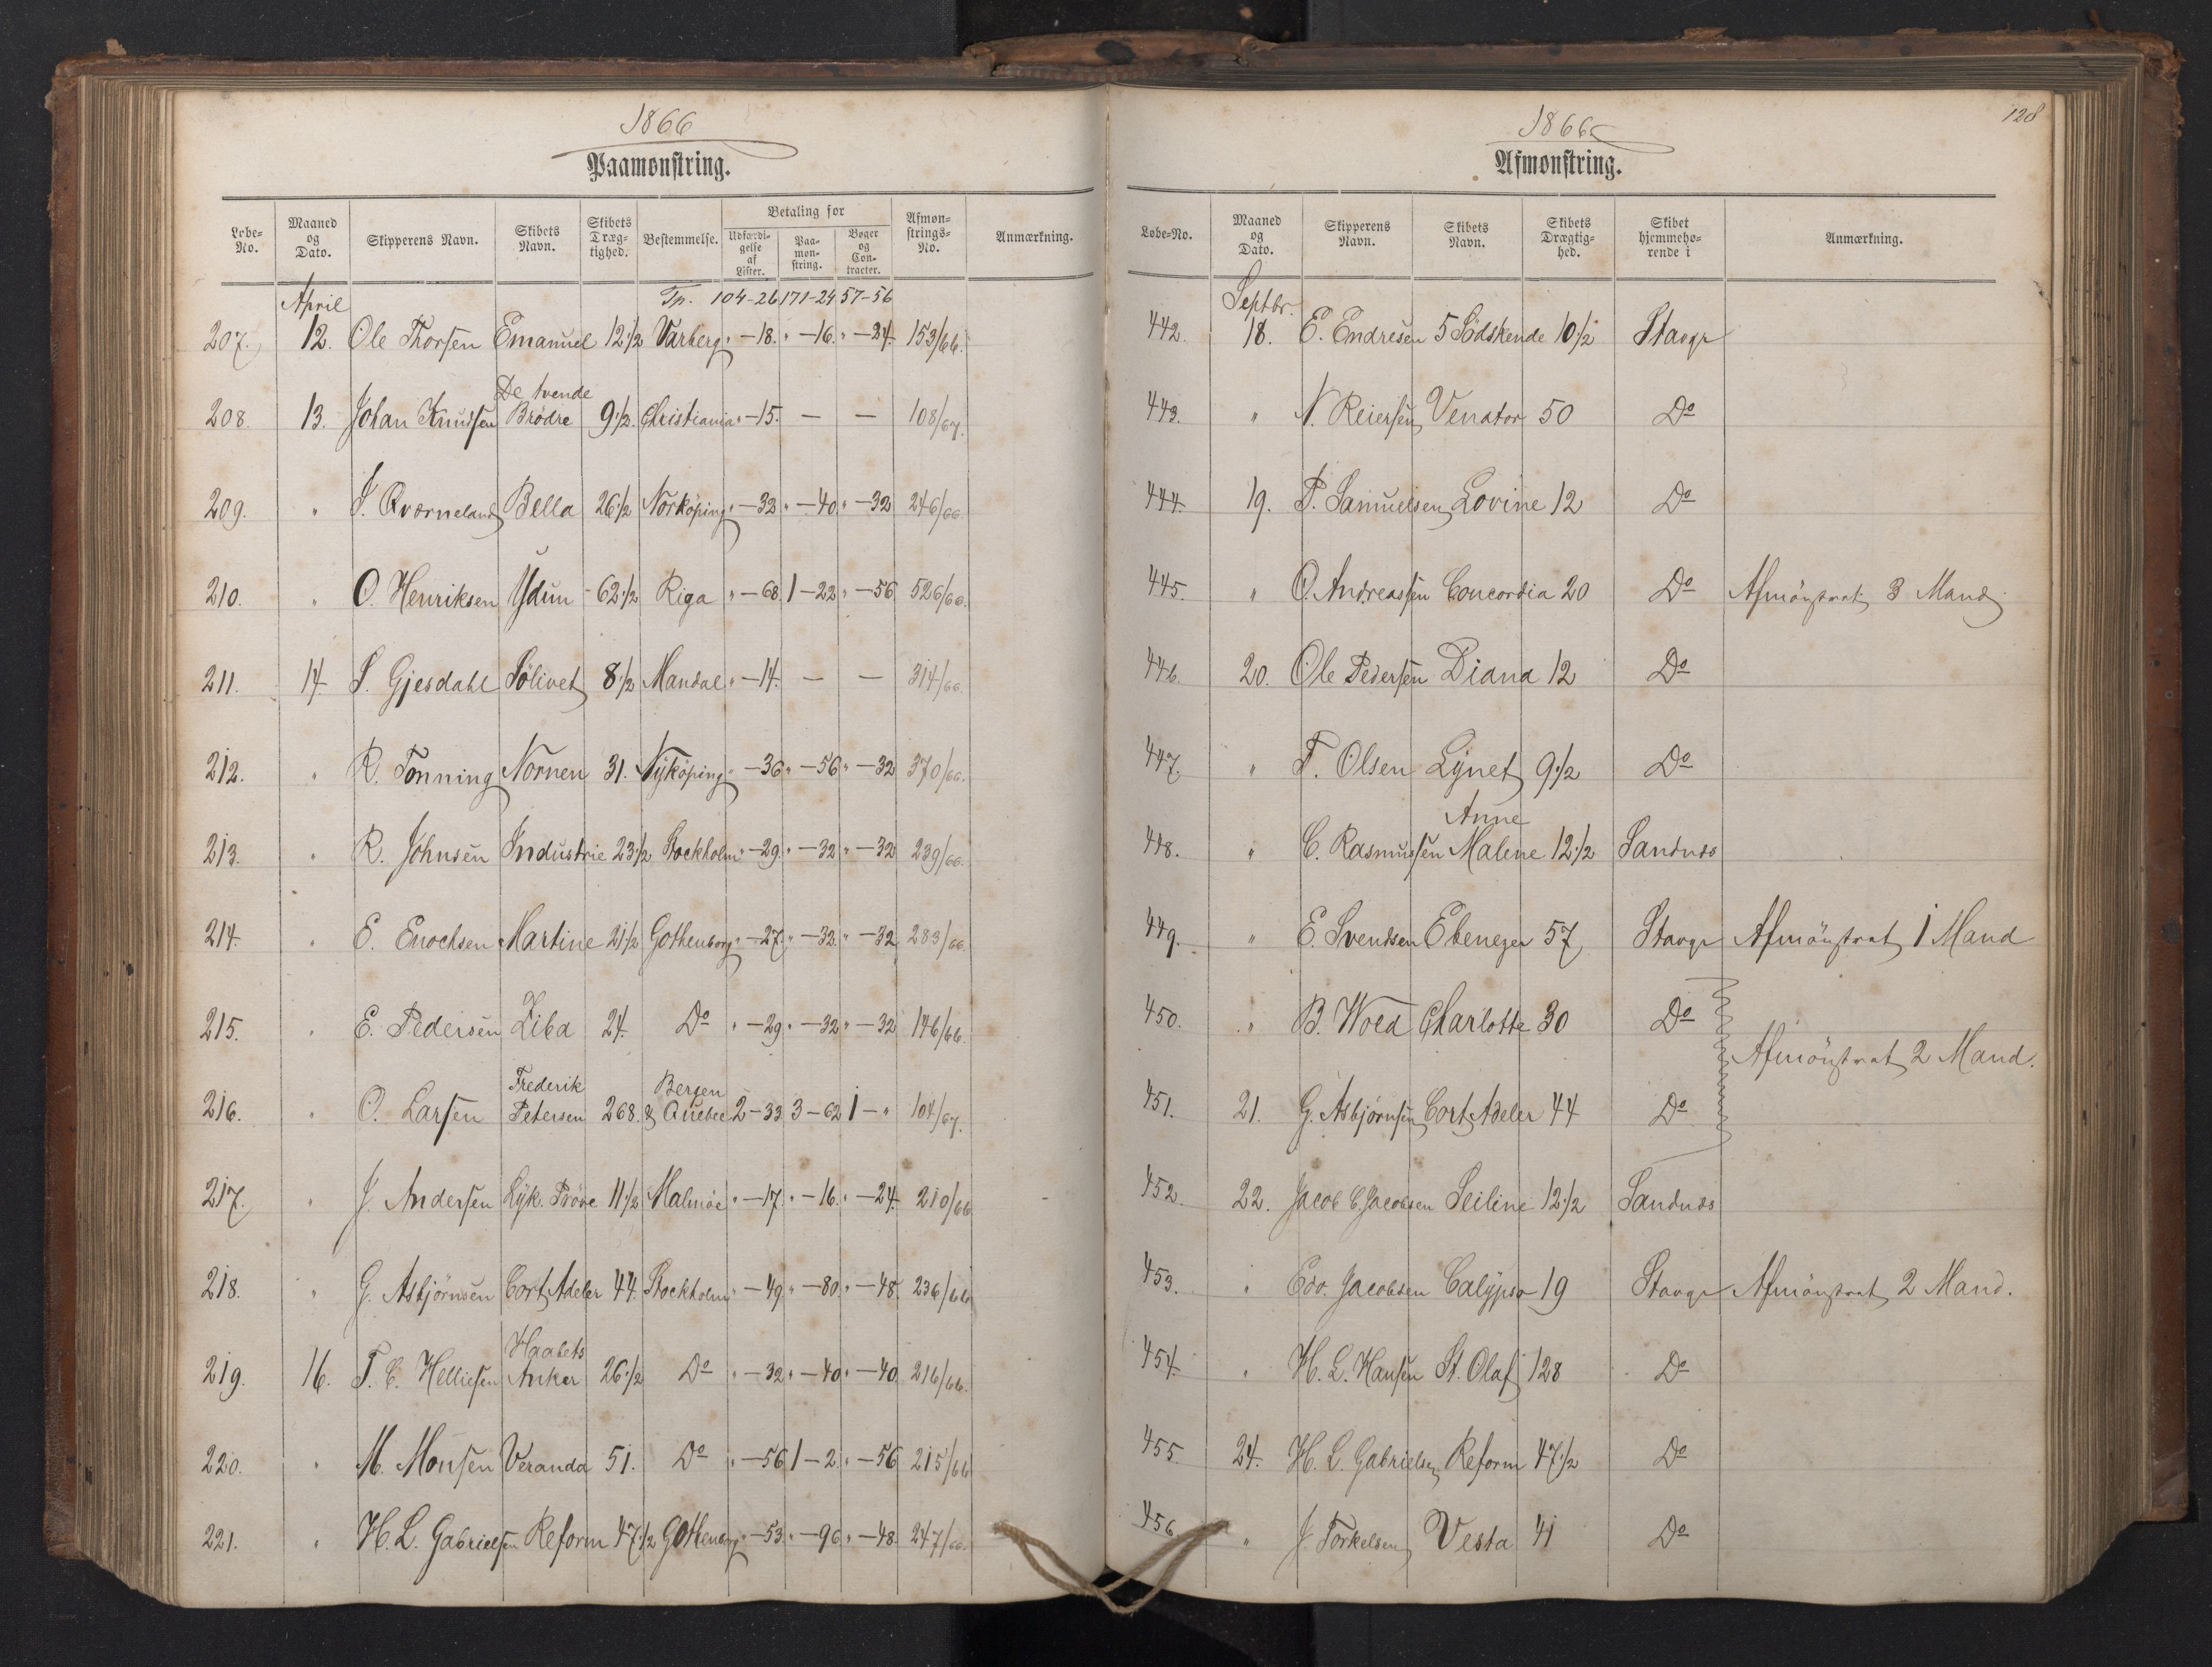 1866
Paamønstring.
Løbe-No. Maaned og Dato. Skipperens Navn. Skibets Navn. Skibets Dræg-tighed. Bestemmelse. Betaling for Udfærdi-gelse af Lister. Paa-møn-string. Bøger og Con-tracter. Afmøn-strings-No. Anmærkning.
April Tp. 104-26 171-24 57-56
207. 12. Ole Thorsen Emanuel 12 1/2 Varberg " -18. " -16. " -24. 153/66.
208. 13. Johan Knudsen De tvende Brødre 9 1/2. Christiania " -15. — — 108/67.
209. " J. Qværneland Bella 26 1/2 Norköping " -32 " -40 " -32 246/66.
210. " O. Henriksen Ydun 62 1/2 Riga " -68. 1-22 " -56 526/66.
211. 14. S. Gjesdahl Sølivet 8 1/2 Mandal " -14. — — 314/66.
212. " R. Tonning Nornen 31. Nyköping " -36 " -56 " -32 370/66.
213. " R. Johnsen Industrie 23 1/2 Stockholm " -29. " -32 " -32 239/66.
214. " E. Enochsen Martine 21 1/2 Gothenborg " -27. " -32. " -32 283/66.
215. " E. Pedersen Ziba 24. Do " -29. " -32 " -32 146/66.
216. " O. Larsen Frederik Petersen 268. Bergen & Quebec 2-33 3-62 1-" 104/67.
217. " J. Andersen Lyk. Prøve 11 1/2 Malmöe " -17. " -16. " -24. 210/66
218. " G. Asbjörnsen Cort Adeler 44. Stockholm " -49 " -80. " -48. 236/66
219. 16. T. C. Helliesen Haabets Anker 26 1/2 Do " -32 " -40 " -40. 216/66.
220. " M. Monsen Veranda 51. Do " -56 1-2. " -56 215/66
221. " H. L. Gabrielsen Reform 47 1/2 Gothenborg " -53. " -96 " -48. 247/66.
128
1866
Afmønstring.
Løbe-No. Maaned og Dato. Skipperens Navn. Skibets Navn. Skibets Drægtig-hed. Skibet hjemmehø-rende i Anmærkning.
Septbr.
442. 18. E. Endresen 5 Södskende 10 1/2 Stavgr
443. " N. Reiersen Venator 50 Do
444. 19. P. Samuelsen Lovine 12 Do
445. " O. Andreassen Concordia 20 Do Afmönstrat 3 Mand
446. 20. Ole Pedersen Diana 12 Do
447. " T. Olsen Lynet 9 1/2 Do
448. " C. Rasmussen Anne Malene 12 1/2 Sandnæs
449. " E. Svendsen Ebenezer 57 Stavgr Afmönstrat 1 Mand
450. " B. Wold Charlotte 30 Do
Afmönstrat 2 Mand.
451. 21. G. Asbjörnsen Cort Adeler 44 Do
452. 22. Jacob C. Jacobsen Seiline 12 1/2 Sandnæs
453. " Edv. Jacobsen Calypso 19 Stavgr Afmönstrat 2 Mand.
454. " H. L. Hansen St. Olaf 128 Do
455. 24. H. L. Gabrielsen Reform 47 1/2 Do
456. " J. Torkelsen Vesta 41 Do